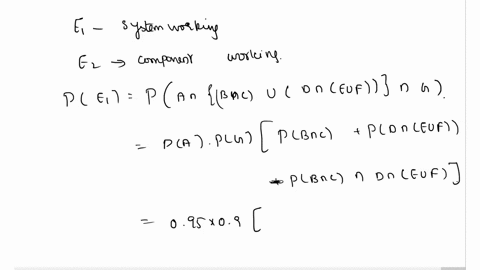 E1 - system working
E2 → component working.
P(E1) = P(A∩{(B∩C) ∪ (D∩(E∪F))}∩G).
= P(A).P(G)[P(B∩C) + P(D∩(E∪F))
- P(B∩C) ∩ D∩(E∪F)]
= 0.95 x 0.9 [